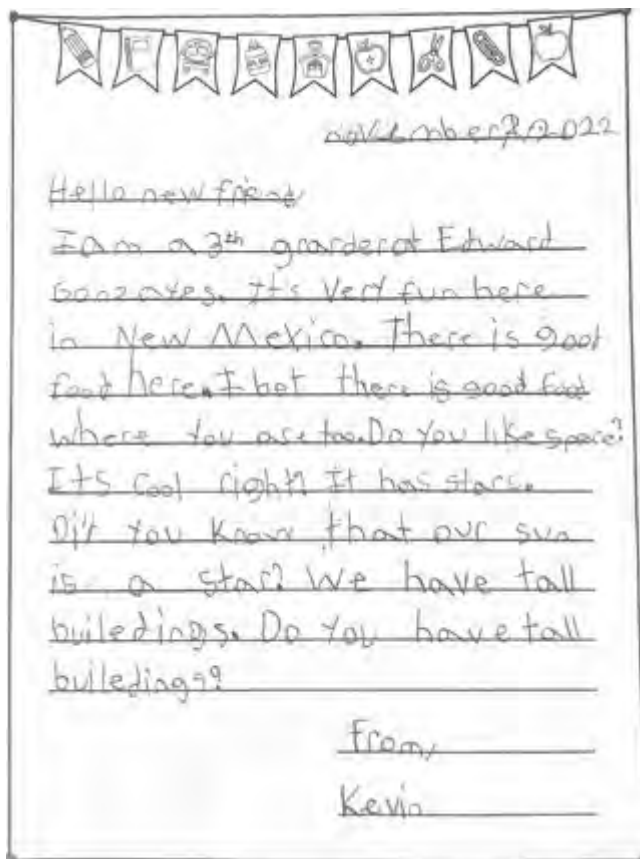 november 2022
Hello new friend
I am a 3th grarder at Edward
Gonzayes. It's Very fun here
in New Mexico. There is goot
food here. I bet there is good food
where You are too. Do You like space?
Its Cool right? It has stars.
Dit You Know that our sun
is a star? We have tall
builedings. Do You have tall
builedings?
From,
Kevin